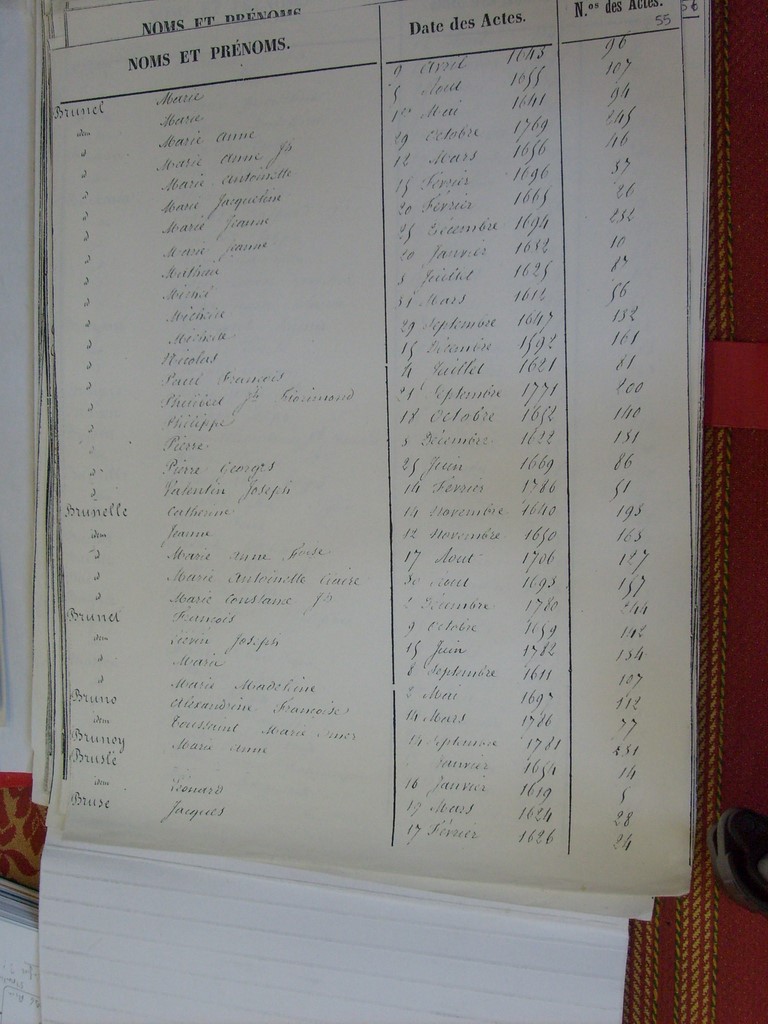 NOMS ET PRÉNOMS
56
NOMS ET PRÉNOMS. Date des Actes. N.os des Actes.
55
Brunel Marie 9 Avril 1643 96
idem Marie 5 Aout 1655 107
d Marie Anne 1er Mai 1641 94
d Marie Anne Jh 29 Octobre 1769 245
d Marie Antoinette 12 Mars 1656 46
d Marie Jacqueline 15 Février 1696 37
d Marie Jeanne 20 Février 1665 26
d Marie Jeanne 25 Décembre 1694 232
d Mathieu 20 Janvier 1632 10
d Michel 8 Juillet 1625 87
d Michelle 31 Mars 1612 56
d Michelle 29 Septembre 1647 132
d Nicolas 15 Décembre 1592 161
d Paul François 4 Juillet 1621 81
d Philibert Jh Florimond 21 Septembre 1771 200
d Philippe 18 Octobre 1652 140
d Pierre 3 Décembre 1622 131
d Pierre Georges 25 Juin 1669 86
d Valentin Joseph 14 Février 1766 51
Brunelle Catherine 14 Novembre 1640 193
idem Jeanne 12 Novembre 1650 163
d Marie Anne 17 Aout 1706 127
d Marie Antoinette Claire 30 Aout 1693 157
d Marie Constance Jh 2 Décembre 1780 244
Brunet François 9 Octobre 1659 142
idem Liévin Joseph 15 Juin 1782 134
d Marie 8 Septembre 1611 107
d Marie Madeleine 2 Mai 1697 112
Bruno Alexandrine Françoise 14 Mars 1786 77
idem Toussaint Marie 14 Septembre 1781 231
Brunoy Marie Anne Janvier 1654 14
Bruslé 16 Janvier 1619 5
idem Léonard 19 Mars 1624 28
Bruse Jacques 17 Février 1626 24